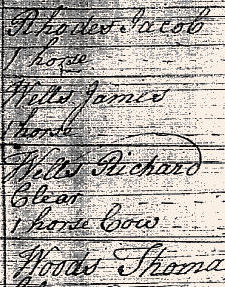 Rhodes Jacob
1 horse
Wells James
1 horse
Wells Richard
Clear
1 horse Cow
Woods Thoma